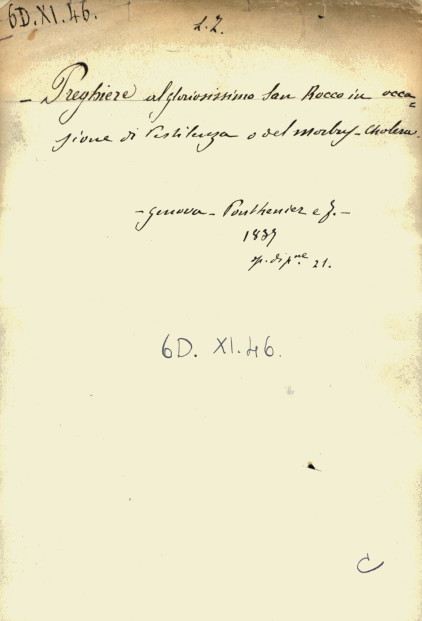 6D.XI.46.
L.Z.
- Preghiere al gloriosissimo San Rocco in occa=
sione di Pestilenza o del morbus-Cholera.
- Genova - Ponthenier e F. -
1837
op. di p.ne 21.
6D. XI.46.
C